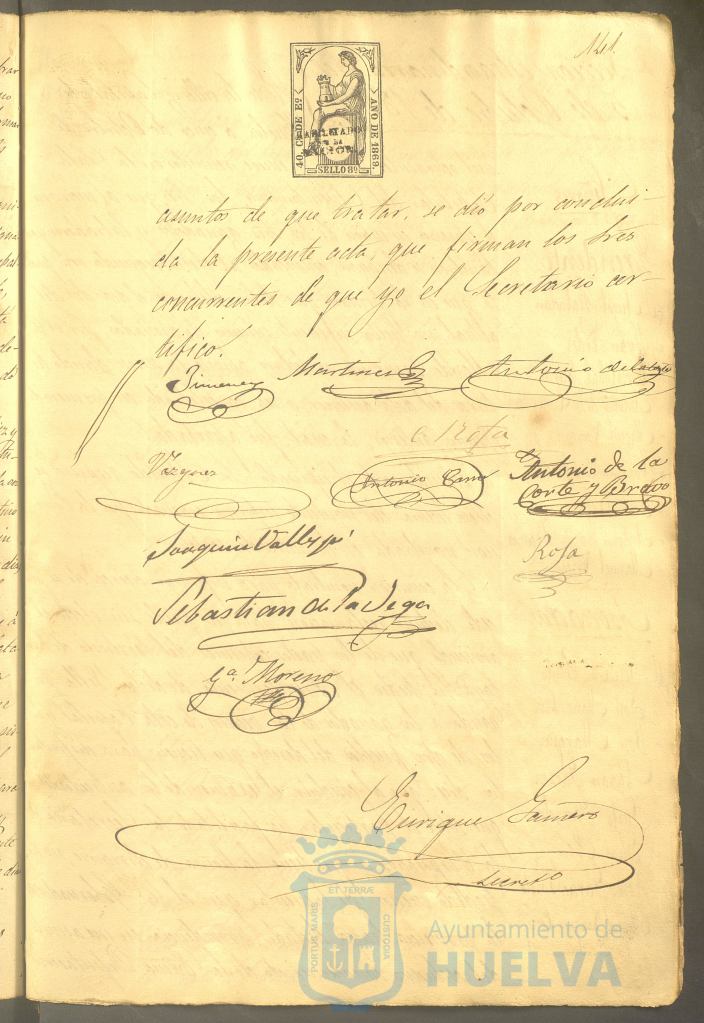 141.
40. CS DE Eº
AÑO DE 1869.
HABILITADO
POR LA
NACION.
SELLO 8º
asuntos de que tratar, se dió por conclui-
da la presente acta, que firman los Sres
concurrentes de que yo el Secretario cer-
tifico.
Jimenez Martinez Antonio de
Rosa
Vazquez Antonio Antonio de la
Corte y Bravo
Joaquin Vallejo
Rosa
Sebastian de la Vega
Gª Moreno
Enrique Gamero
Secretº
ET TERRÆ
PORTUS MARIS
CUSTODIA
Ayuntamiento de
HUELVA